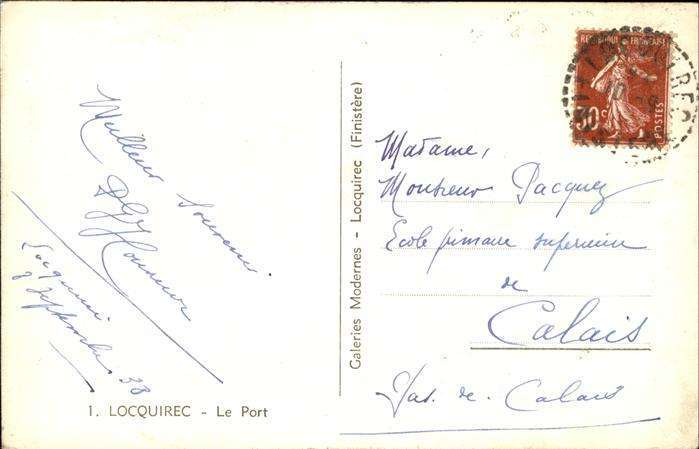 Meilleur Souvenir
Locquirec
9 Septembre 38
1. LOCQUIREC - Le Port
Galeries Modernes - Locquirec (Finistère)
REPUBLIQUE FRANÇAISE
30c
POSTES
Madame,
Monsieur Pacquez
Ecole primaire supérieure
de
Calais
Pas. de. Calais